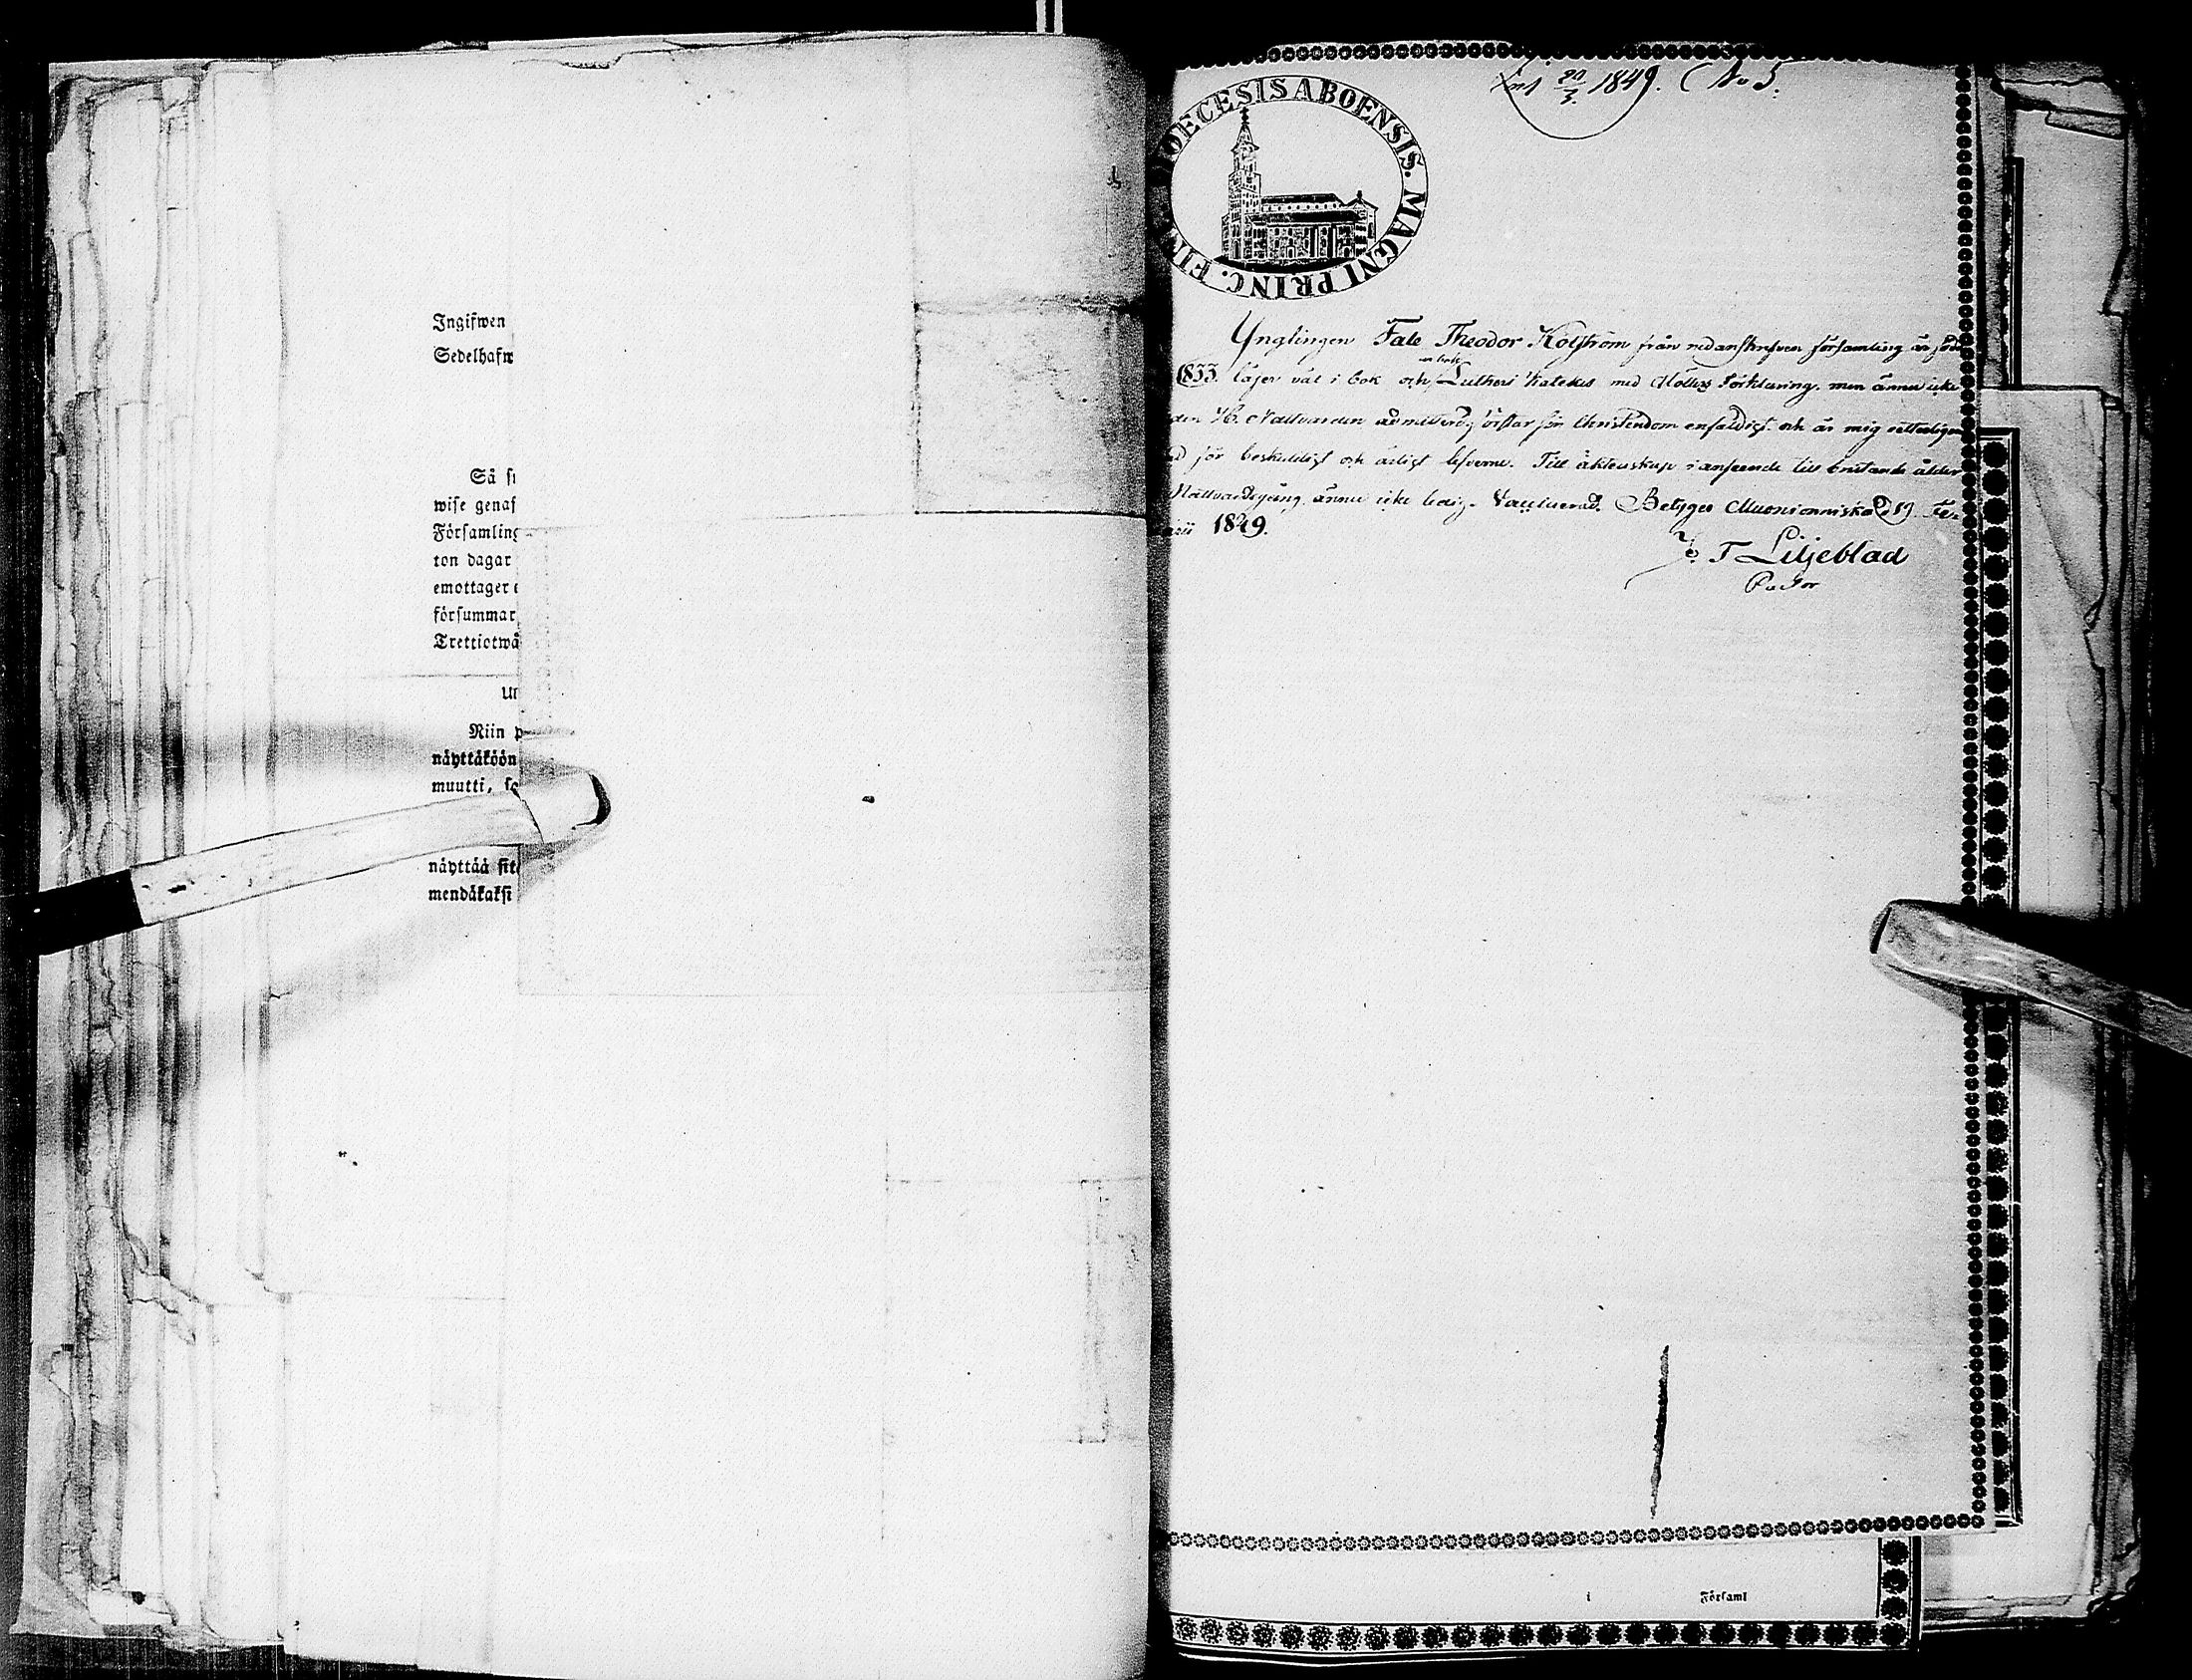 Ingifwen
Sedelhafw
Så si
wise genas
Församling
ton dagar
emottager e
försummar
Trettiotwå
Ur
Niin p
näyttäköön
muutti, so
näyttää site
mendäkaksi
Inl 20/3. 1849. (No 5.
DIOECESIS ABOENSIS. MAGNI PRINC. FIN
Ynglingen Fale Theodor Kolström från nedanskrefven församling är född
1833. läser väl i bok och Lutheri Katekes med förklaring, men ännu icke
den H. Nattvarden admitterd, förstar sin Christendom enfaldigt och är mig vetterligen
d för beskedligt och ärligt lefverne. Till äktenskap i anseende till bristande ålder
Nattvardsgång ännu icke ledig. Vaccinerad. Betygas Muonionniska d. 19. Fe-
arii 1849.
T Liljeblad
Pastor
i Församl